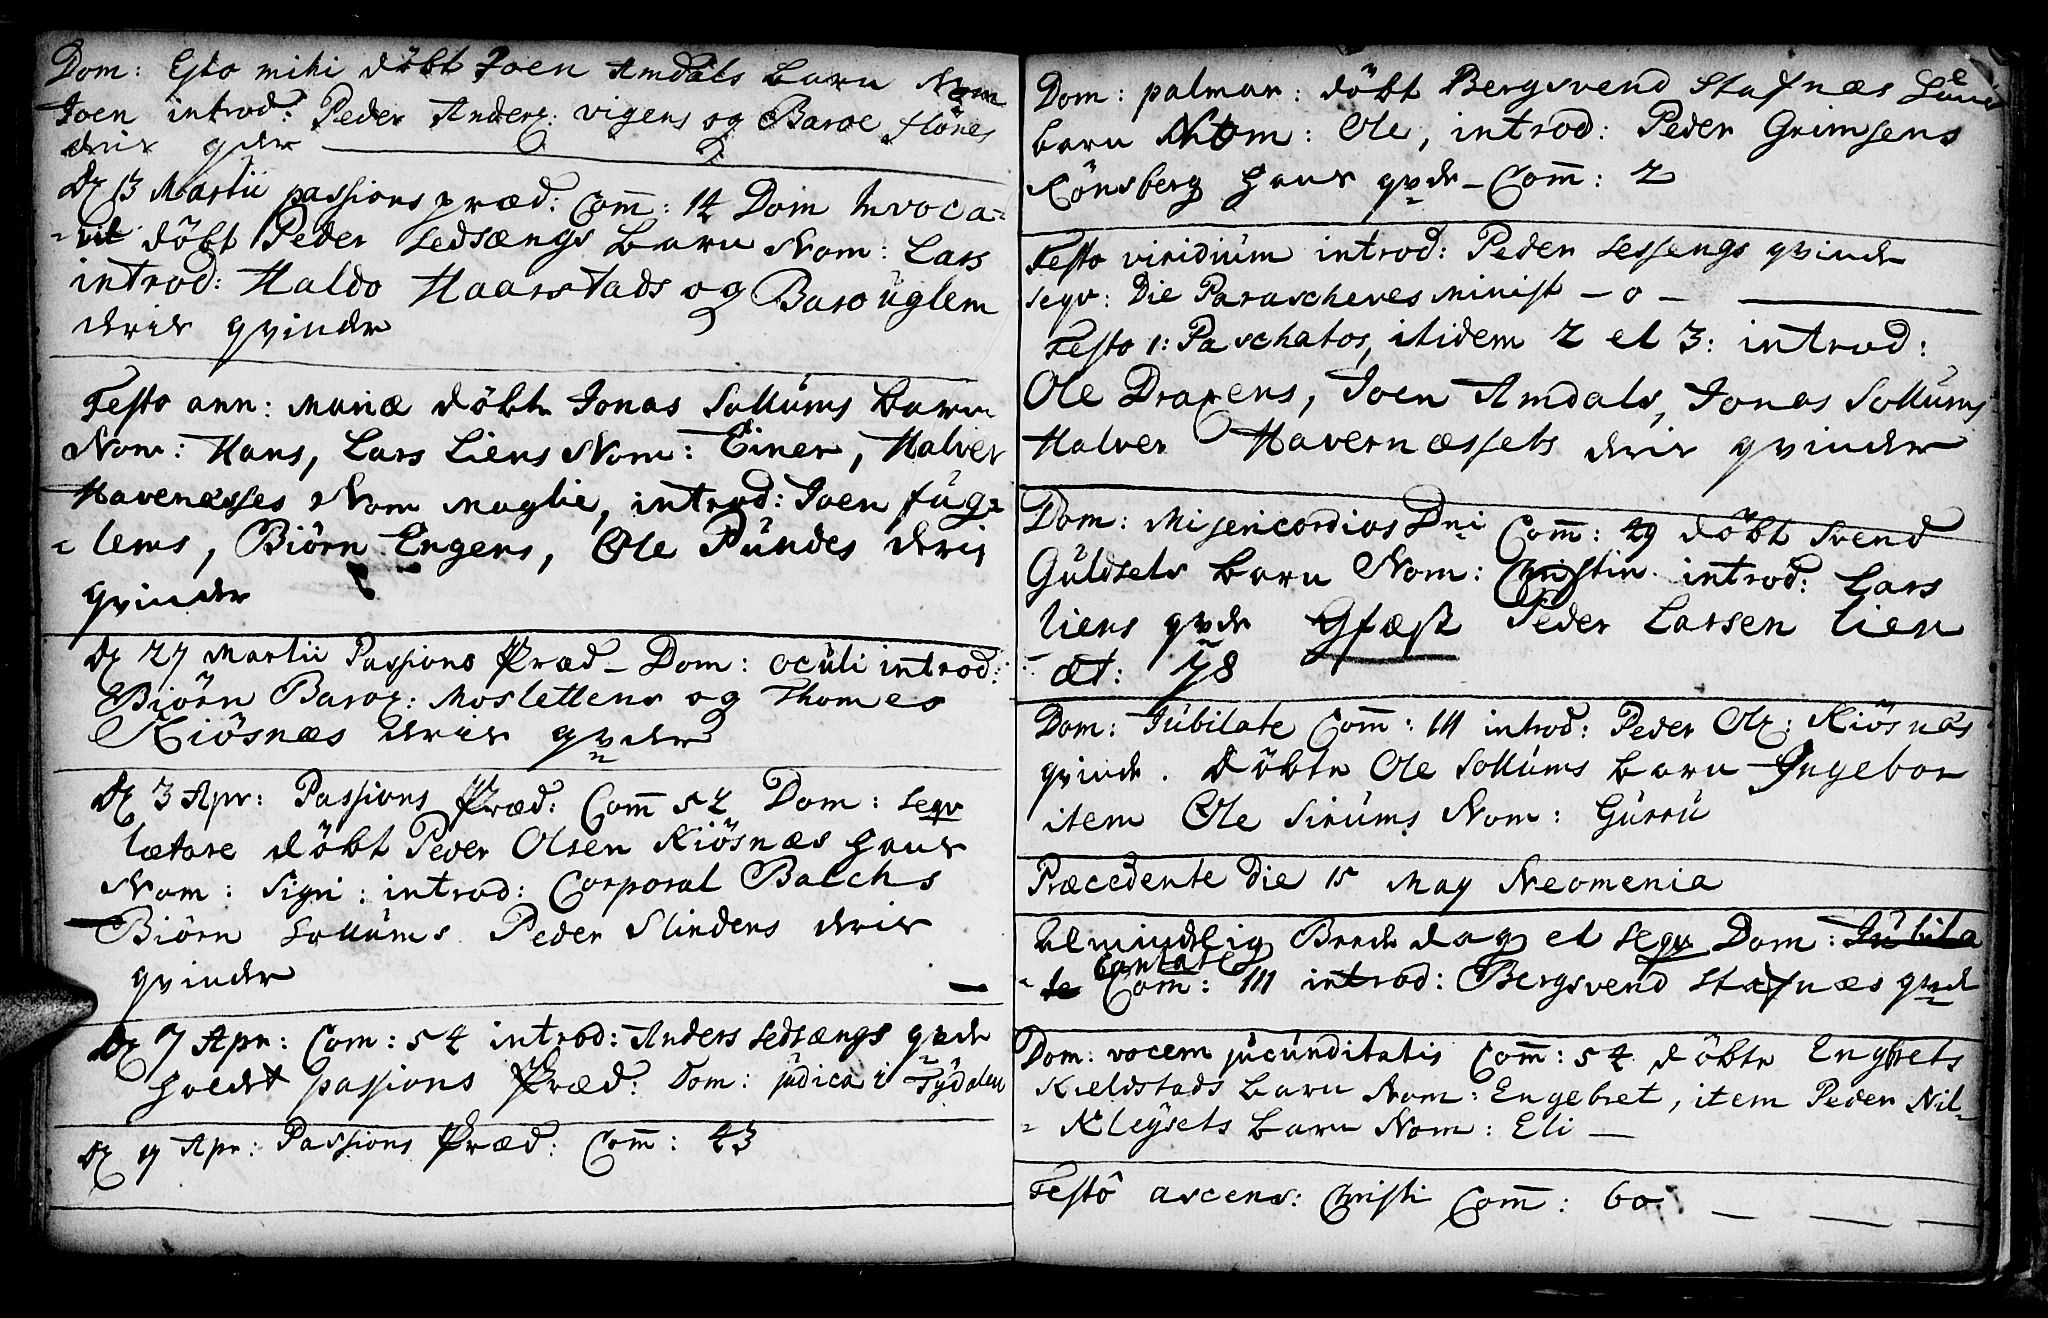 Dom: Esto mihi döbt Joen Amdals barn Nom
Joen introd: Peder Anders: vigens og Baroe flönes
deris qder
D 13 Martii passions præd: Com̄: 14 Dom Invoca-
-vit döbt Peder Sedsængs barn Nom: Lars
introd: Haldo Haarstads og Baro üglem
deris qvinder
Festo ann: Mariæ döbte Jonas Sollüms barn
Nom: Hans, Lars Liens Nom: Einer, Halver
Havernæsses Nom Maglie, introd: Joen füg-
-lems, Biörn Engens, Ole Pündes deris
qvinder
D 27 Martii Passions Præd – Dom: oculi introd:
Biörn Bars: Moslettens og Thomes
Kiösnæs deris qvder
D 3 Apr: Passions Præd: Com̄ 54 Dom: seqv
lætare döbt Peder Olsen Kiösnæs hans
Nom: Sigri: introd: Corporal Balchs
Biörn Sollüms Peder Slindens deris
qvinder
D 7 Apr: Com: 54 introd: Anders Sedsængs qvde
holdet passions Præd: Dom: judica i Tydalen
D 17 Apr: Passions Præd: Com̄: 43
Dom: palmar: döbt Bergsvend Stafnæs
barn Nom: Ole, introd: Peder Grimsens
Rönsberg hans qvde – Com̄: 2
Festo viridium introd: Peder Sessengs qvinde
seqv: Die Parascheves Minist – o –
Festo 1: Paschatos, itidem 2 et 3: introd:
Ole Draxens, Joen Amdals, Jonas Sollüms
Halver Havernæssets deris qvinder
Dom: Misericordias Dni Com̄: 49 döbt Svend
Güldsets barn Nom: Christin introd: Lars
liens qvde Gfæst Peder Larsen lien
æt: 78
Dom: Jübilate Com̄: 111 introd: Peder Ols: Kiösnæs
qvinde. döbte Ole Sollüms barn Ingebor
item Ole Sirüms Nom: Gürrü
Præcedente Die 15 May Neomenia
Almindelig Brede dag et seqv Dom: Jübila
-te Cantate Com: 111 introd: Bergsvend Stafnæs qvde
Dom: vocem jucunditatis Com̄: 54 döbte Engbrets
Kieldstads barn Nom: Engebret, item Peder Nil-
- Kleÿsets barn Nom: Eli –
Festô ascens: Christi Com̄: 60